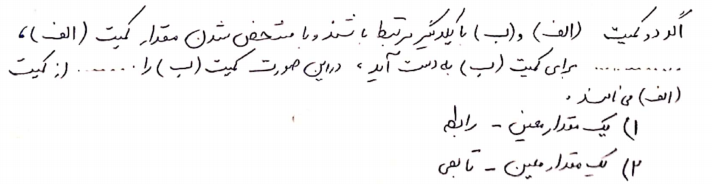 اگر دو کمیت (الف) و (ب) با یکدیگر مرتبط باشند و با مشخص شدن مقدار کمیت (الف)،
............ برای کمیت (ب) به دست آید، در این صورت کمیت (ب) را ........ از کمیت
(الف) می نامند.
۱) یک مقدار معین - رابطه
۲) یک مقدار معین - تابعی